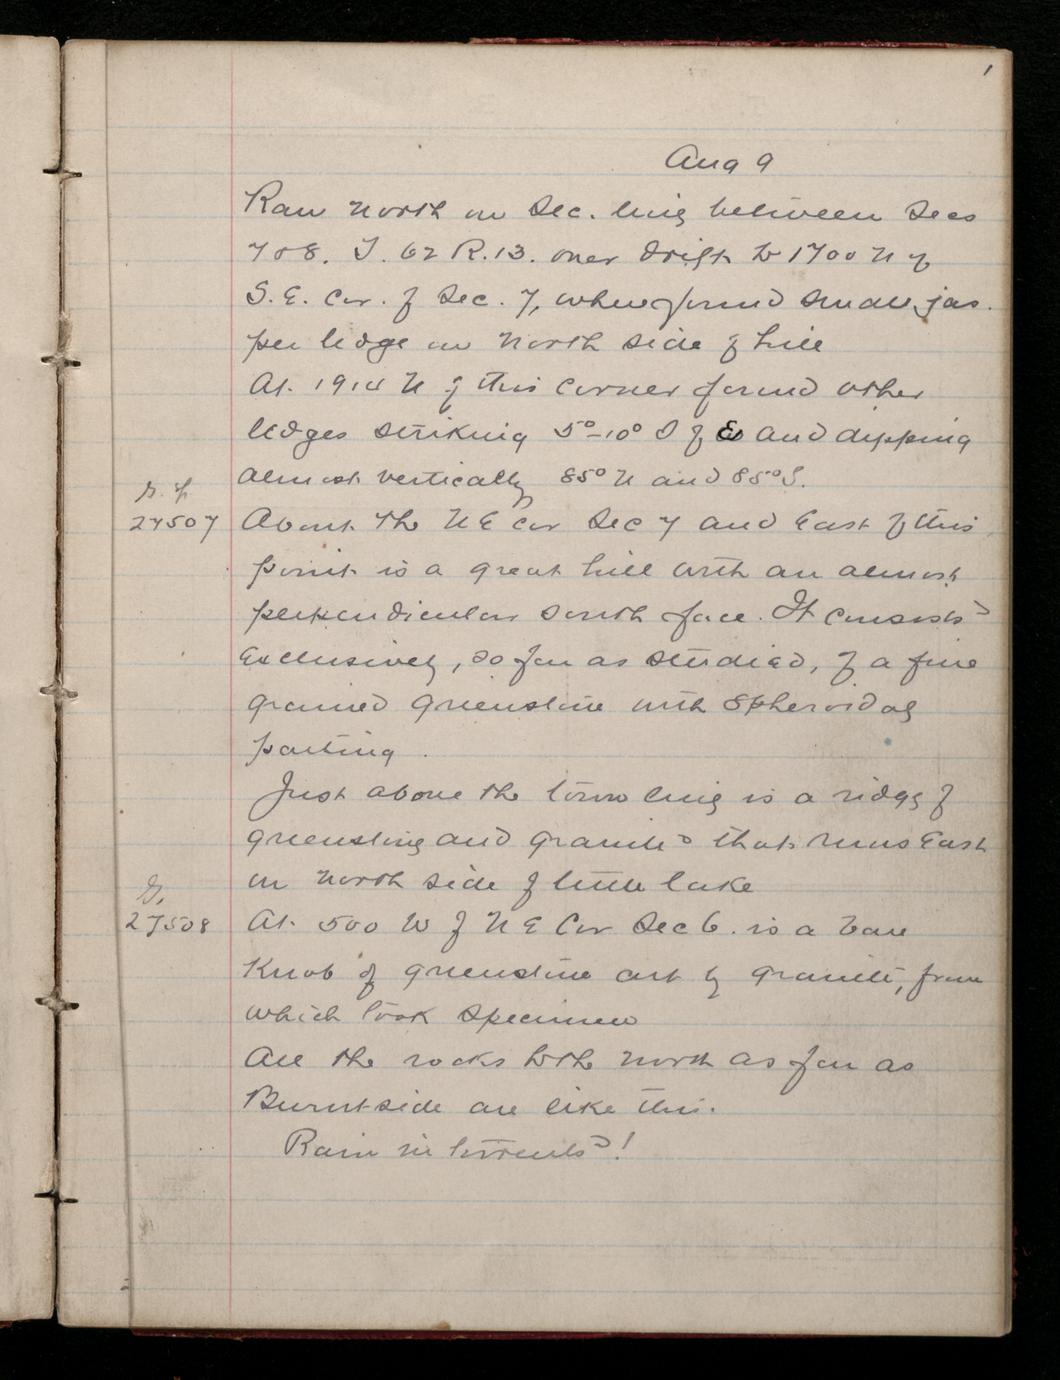 1
Aug 9
Ran north on Sec. line between Secs
7 & 8. T. 62 R. 13. over drift to 1700 N of
S.E. Cor. of Sec. 7, where found small jas-
per ledge on north side of hill
At 1910 N of this corner found other
ledges striking 5°-10° S of E and dipping
almost vertically 85° N and 85° S.
27507
About the N E cor Sec 7 and East of this
point is a great hill with an almost
perpendicular south face. It consists
exclusively, so far as studied, of a fine
grained greenstone with spheroidal
parting.
Just above the town line is a ridge of
greenstone and granite that runs East
on north side of little lake
G.
27508
At 500 W of N E Cor Sec 6. is a bare
Knob of greenstone cut by granite, from
which took specimen
All the rocks to the north as far as
Burntside are like this.
Rain in torrents!